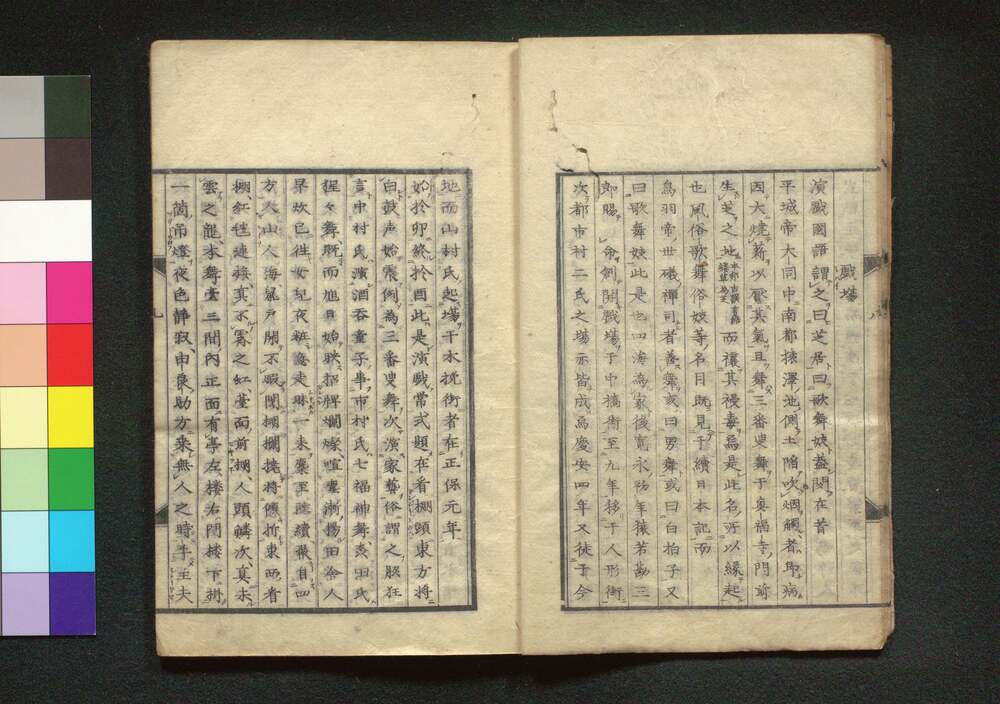 戯場
演戯國語謂之曰芝居曰歌舞妓蓋聞在昔
平城帝大同中南都猿澤池側土陷吹烟觸者即病
因大燒薪以壓其氣且舞三番叟舞于奥福寺門前
生芝之地而禳其祲毒焉是此名所以緣起
也風俗歌舞俗妓等名目既見于續日本記而
鳥羽帝世礒禪司者善舞或曰男舞或曰白拍子又
曰歌舞妓此是也四海為家後寛永初年猿若勘三
郎賜命創開戯場于中橋街至九年移于人形街
次都市村二氏之場亦皆成焉慶安四年又徙于今
地而山村氏起場于木挽街者在正保元年
始於卯終於酉此是演戯常式題在看棚頭東方將
白鼓声始震例為三番叟舞次演家藝俗謂之脇狂
言中村氏演酒吞童子市村氏七福神舞森田氏
猩々舞既而旭日始映招牌爛燦喧塵漸揚田舍人
早故已往女兒夜粧
方人山人海鼠戸開不暇閉棚欄撓將傾折東西看
棚紅氈連接真不霽之紅董面前棚人頭鱗次真未
雲之龍本舞臺三間内正面有亭左樓右閣樓下掛
一箇吊燈夜色静寂申良助方来無人之時手主夫